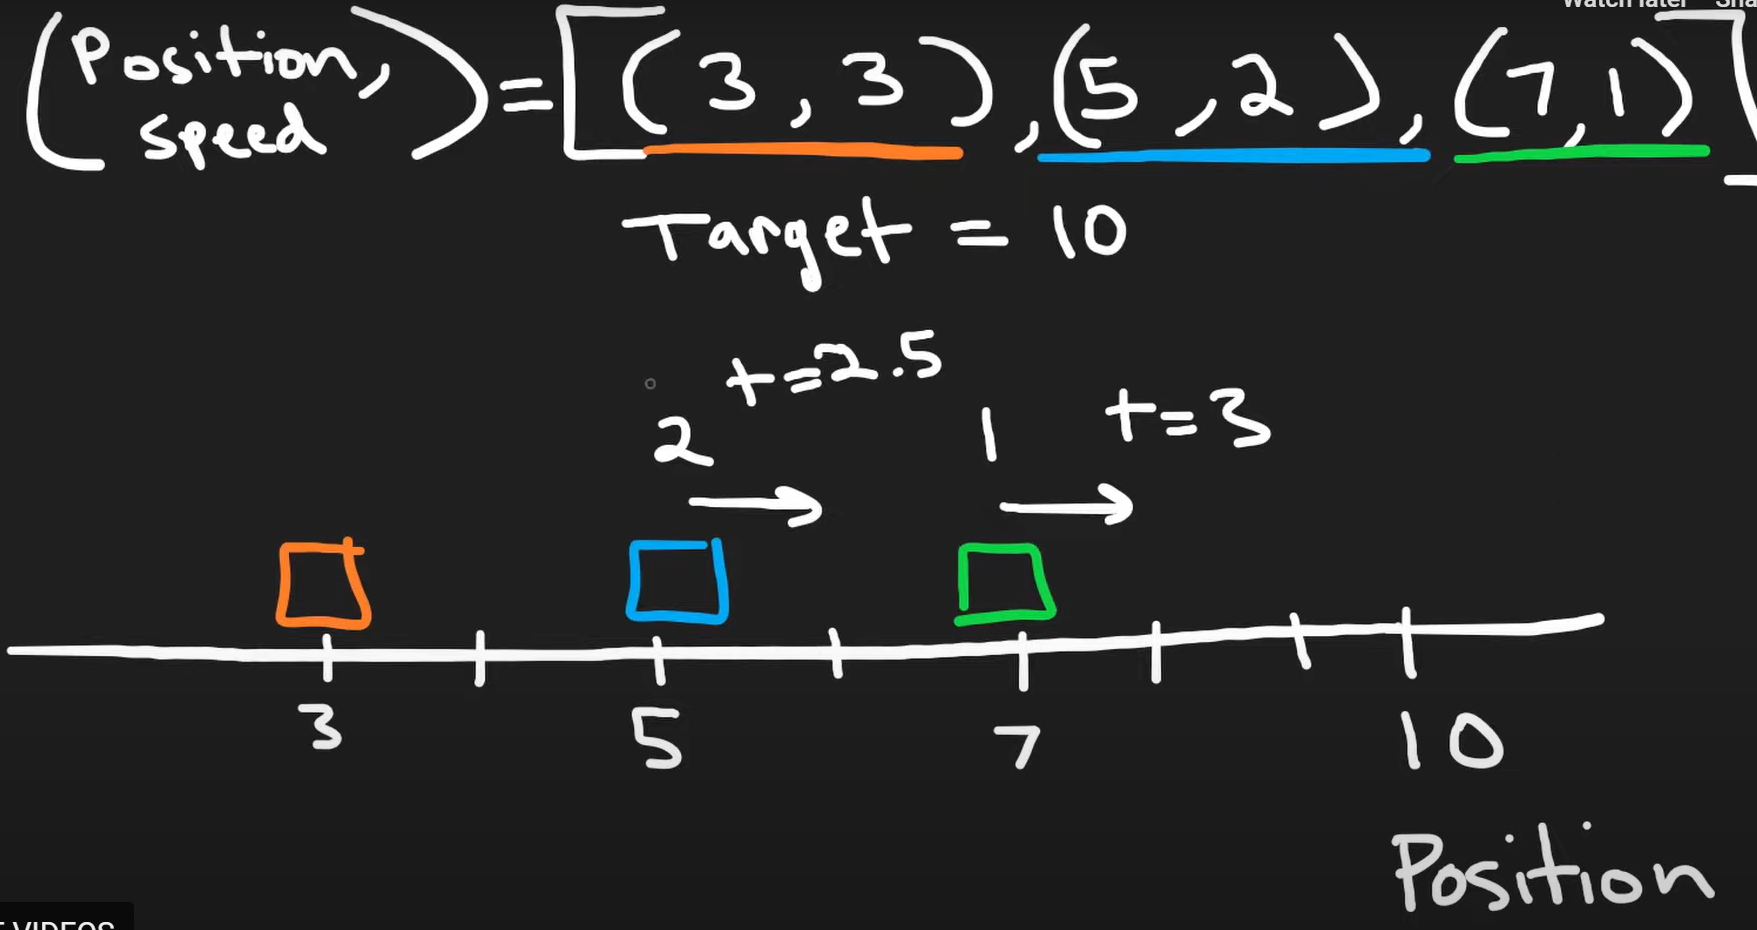 (Position, speed) = [(3,3),(5,2),(7,1)]
Target = 10
t=2.5
2
1
t=3
3 5 7 10
Position
VIDEOS